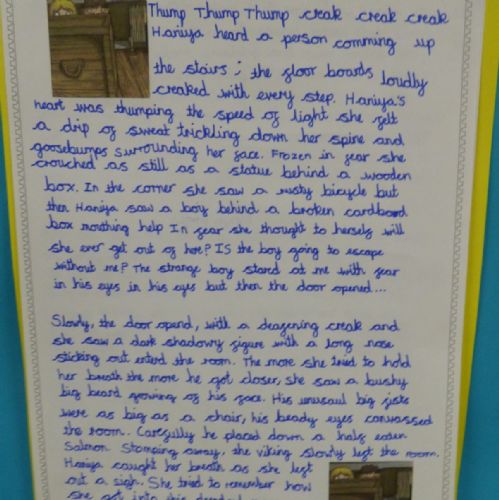 Thump Thump Thump creak creak creak
Haniya heard a person comming up
the stairs ; the floor boards loudly
creaked with every step. Haniya's
heart was thumping the speed of light she felt
a drip of sweat trickling down her spine and
goosebumps surrounding her face. Frozen in fear she
crouched as still as a statue behind a wooden
box. In the corner she saw a rusty bicycle but
then Haniya saw a boy behind a broken cardboard
box mouthing help In fear she thought to herself will
she ever get out of here? IS the boy going to escape
without me? The strange boy stared at me with fear
in his eyes in his eyes but then the door opened...
Slowly, the door opend, with a deafening creak and
she saw a dark shadowy figure with a long nose
sticking out enterd the room. The more she tried to hold
her breath the more he got closer, she saw a bushy
big beard growing of his face. His unusaul big fists
were as big as a chair, his beady eyes canvassed
the room. Carefully he placed down a half eaten
Salmon Stomping away, the viking slowly left the room.
Haniya caught her breath as she left
out a sigh. She tried to remember how
she got into this